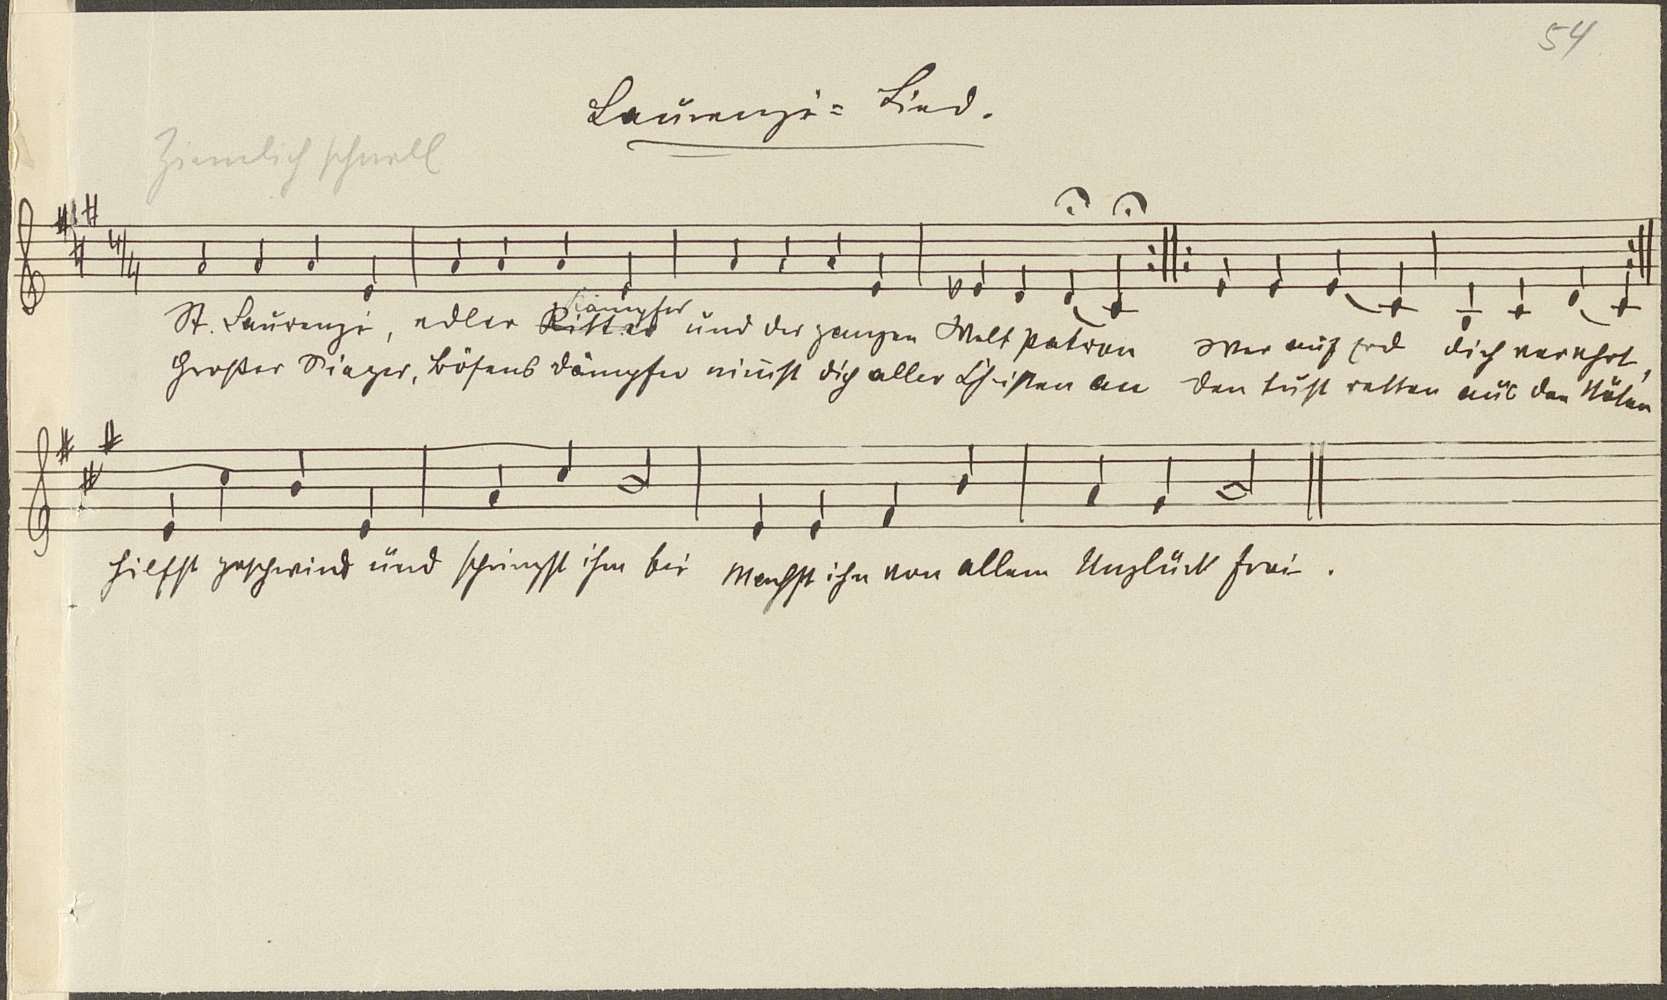 54
Laurenzi= Lied.
Ziemlich schnell
Kämpfer
St. Laurenzi, edler Ritter und der ganzen Welt Patron Wer auf Erd dich verehrt,
Großer Sieger, Bösens Dämpfer nimst dich aller Christen an den tust retten aus den Nöten
hilfst geschwind und springst ihm bei Machst ihn von allem Unglück frei.